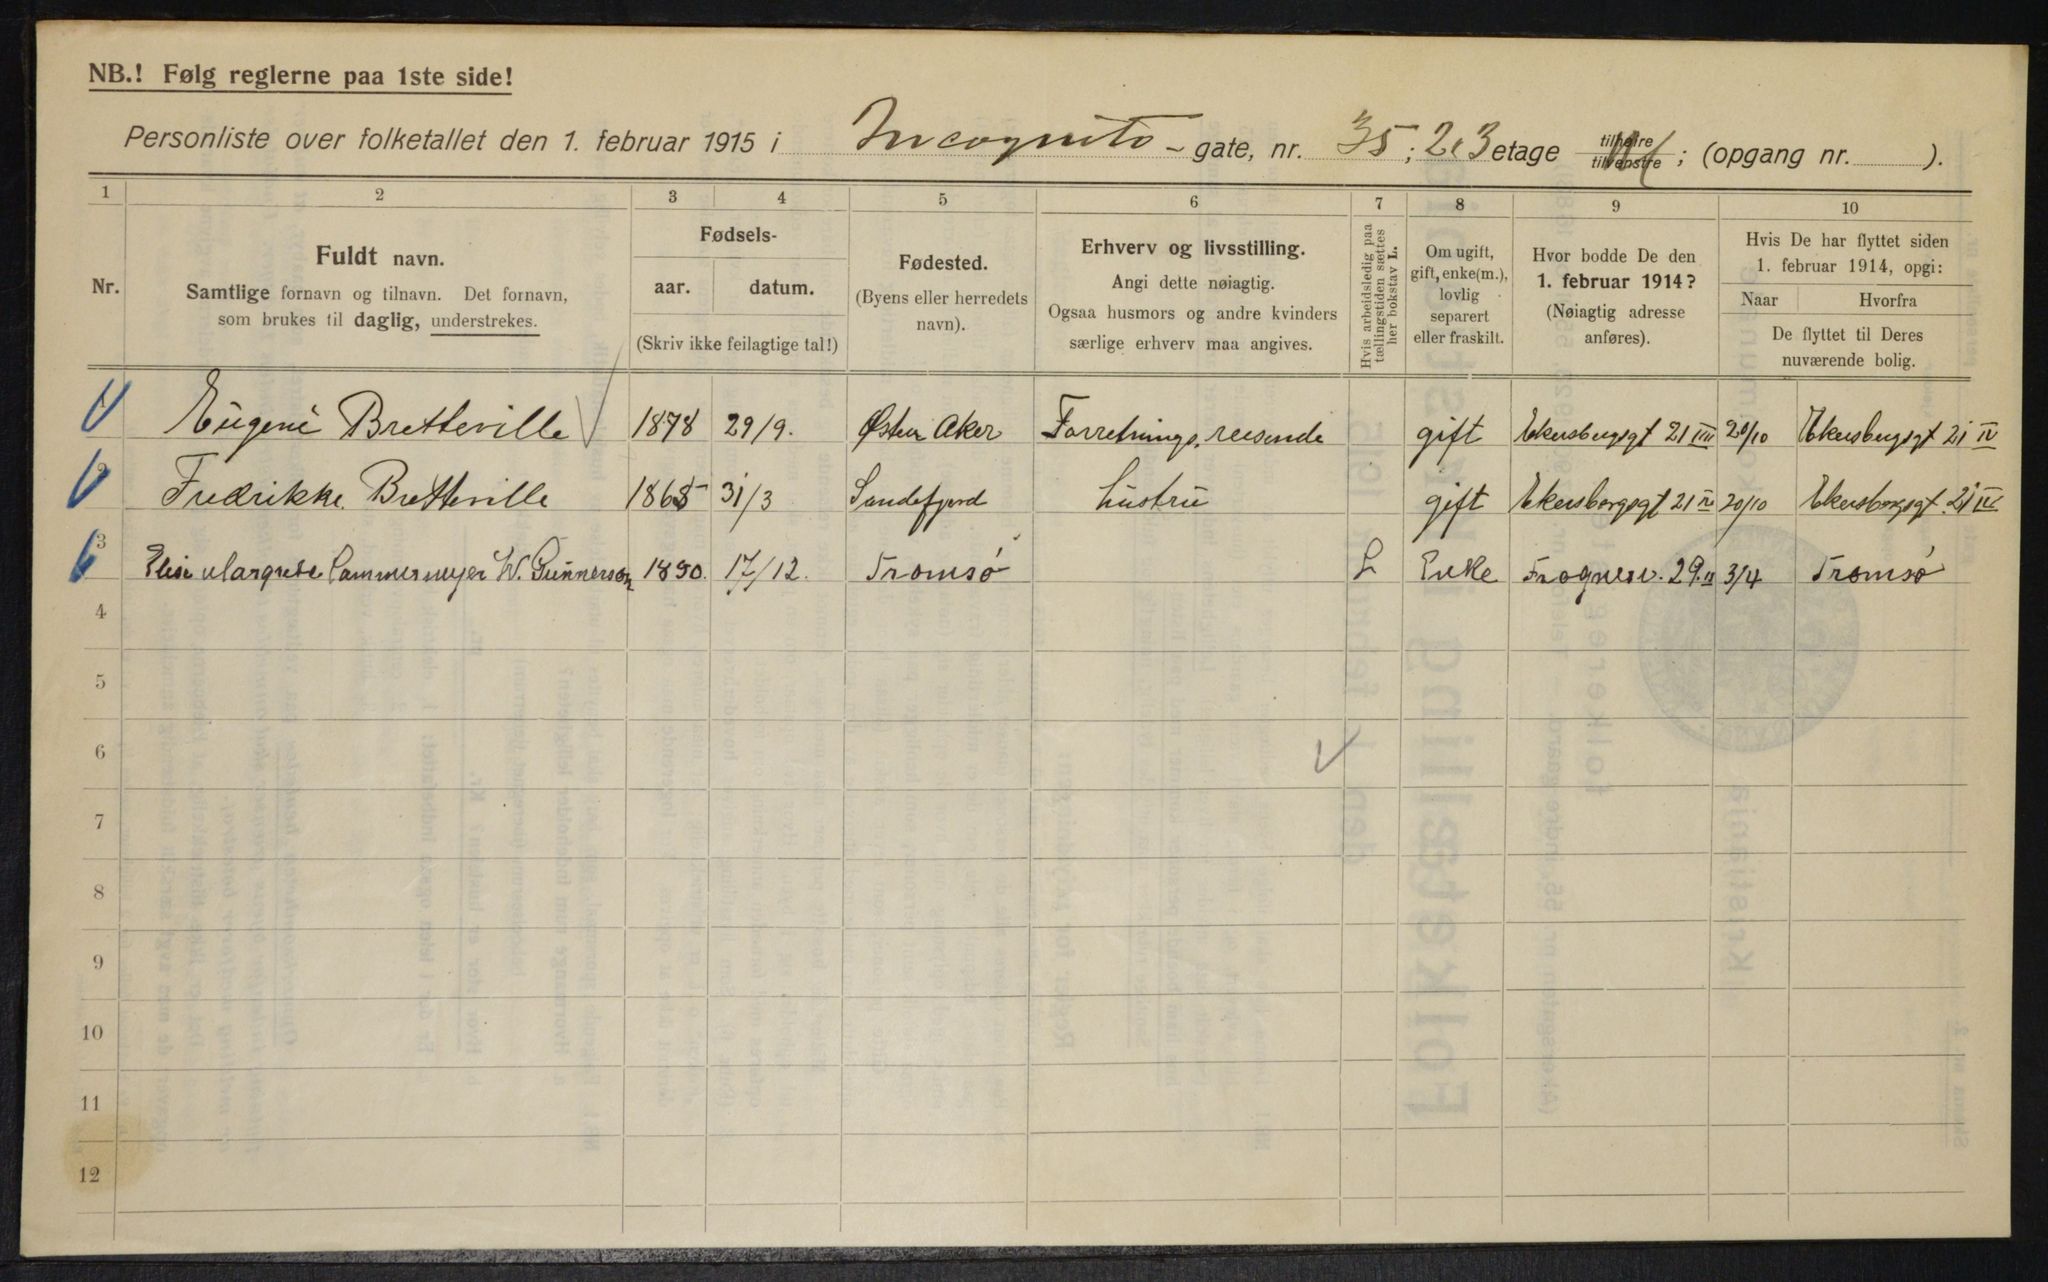 NB.! Følg reglerne paa 1ste side!
Personliste over folketallet den 1. februar 1915 i Incognito - gate, nr. 35; 2.3 etage tilhøire / tilvenstre; (opgang nr. ).
1 2 3 4 5 6 7 8 9 10
Nr.
Fuldt navn.
Samtlige fornavn og tilnavn. Det fornavn,
som brukes til daglig, understrekes.
Fødsels-
aar. datum.
(Skriv ikke feilagtige tal!)
Fødested.
(Byens eller herredets
navn).
Erhverv og livsstilling.
Angi dette nøiagtig.
Ogsaa husmors og andre kvinders
særlige erhverv maa angives.
Hvis arbeidsledig paa
tællingstiden sættes
her bokstav L.
Om ugift,
gift, enke(m.),
lovlig
separert
eller fraskilt.
Hvor bodde De den
1. februar 1914?
(Nøiagtig adresse
anføres).
Hvis De har flyttet siden
1. februar 1914, opgi:
Naar Hvorfra
De flyttet til Deres
nuværende bolig.
1 Eugene Bretteville 1878 29/9. Østre Aker Forretnings, reisende gift Ekersbergsgt 21 20/10 Ekersbergsgt 21 IV
2 Fredrikke Bretteville 1865 31/3 Sandefjord hustru gift Ekersbergsgt 21 IV 20/10 Ekersbergsgt. 21 IV
3 Elise Margrete Cammermeyer W. Gunnerson 1890. 17/12. Tromsø L Enke Frognerv. 29. II 3/4 Tromsø
4
5
6
7
8
9
10
11
12